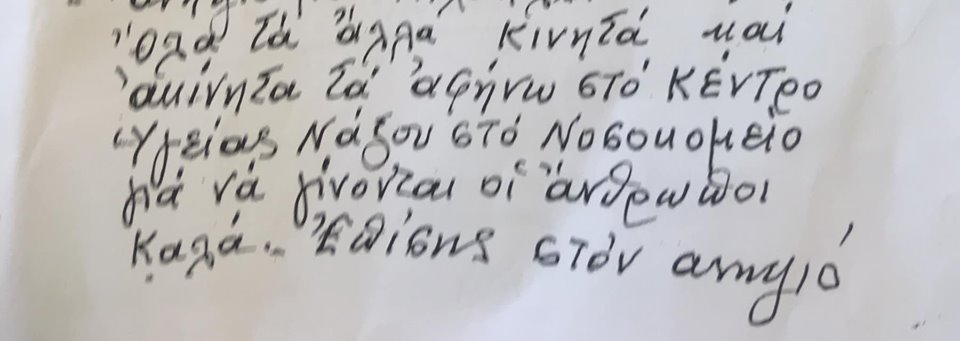 Ὅλα τά ἄλλα κινητά καί
ἀκίνητα τά ἀφήνω στό ΚέΝΤρο
Ὑγείας Νάξου στό Νοσοκομεῖο
γιά νά γίνονται οἱ ἄνθρωποι
καλά.. Ἐπίσης στόν